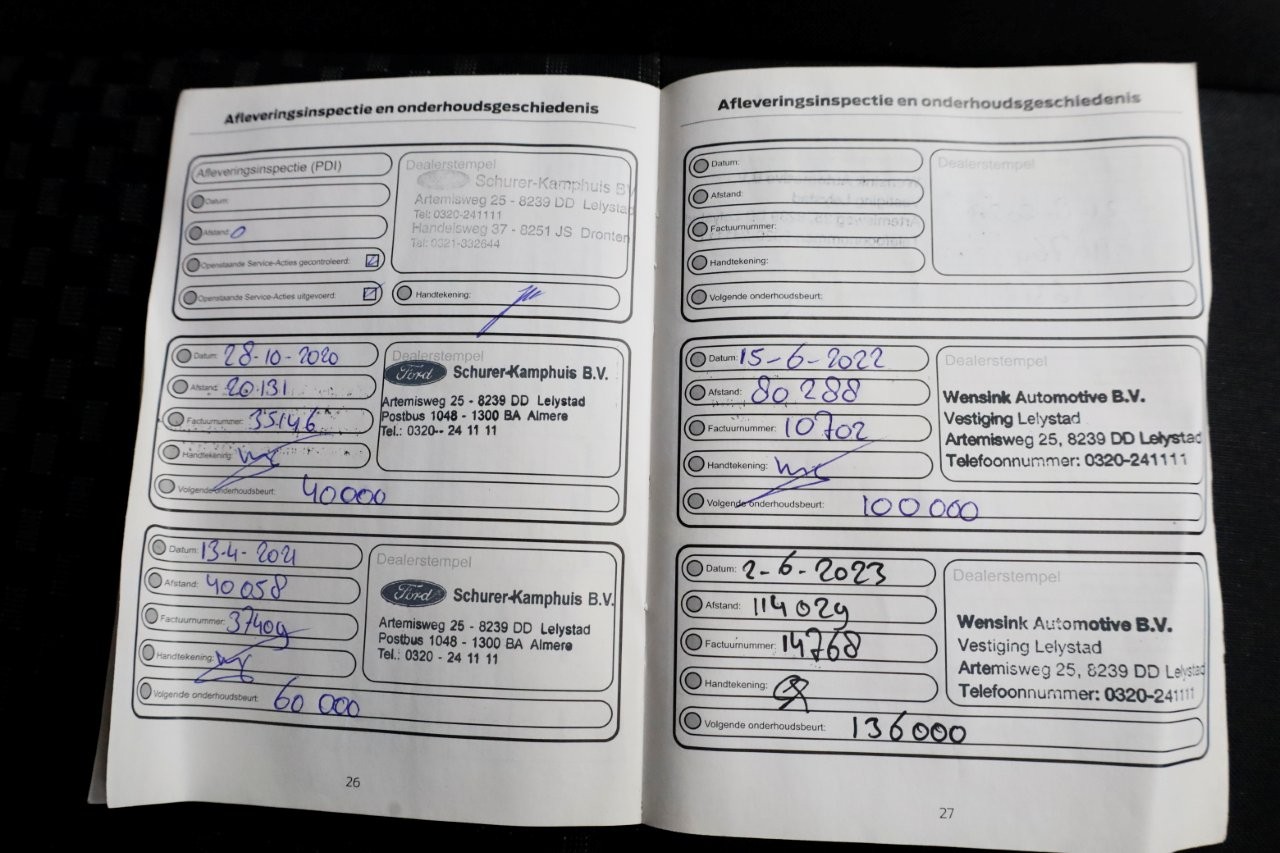 Afleveringsinspectie en onderhoudsgeschiedenis
Afleveringsinspectie (PDI)
Datum:
Afstand: 0
Openstaande Service-Acties gecontroleerd:
Openstaande Service-Acties uitgevoerd:
Dealerstempel
Schurer-Kamphuis BV
Artemisweg 25 - 8239 DD Lelystad
Tel: 0320-241111
Handelsweg 37 - 8251 JS Dronten
Tel: 0321-332644
Handtekening:
Datum: 28-10-2020
Afstand: 20131
Factuurnummer: 35146
Handtekening:
Volgende onderhoudsbeurt: 40000
Dealerstempel
Ford Schurer-Kamphuis B.V.
Artemisweg 25 - 8239 DD Lelystad
Postbus 1048 - 1300 BA Almere
Tel.: 0320-- 24 11 11
Datum: 13-4-2021
Afstand: 40058
Factuurnummer: 37409
Handtekening:
Volgende onderhoudsbeurt: 60 000
Dealerstempel
Ford Schurer-Kamphuis B.V.
Artemisweg 25 - 8239 DD Lelystad
Postbus 1048 - 1300 BA Almere
Tel.: 0320 - 24 11 11
26
Afleveringsinspectie en onderhoudsgeschiedenis
Datum:
Afstand:
Factuurnummer:
Handtekening:
Volgende onderhoudsbeurt:
Dealerstempel
Datum: 15-6-2022
Afstand: 80288
Factuurnummer: 10702
Handtekening:
Volgende onderhoudsbeurt: 100000
Dealerstempel
Wensink Automotive B.V.
Vestiging Lelystad
Artemisweg 25, 8239 DD Lelystad
Telefoonnummer: 0320-241111
Datum: 2-6-2023
Afstand: 114029
Factuurnummer: 14768
Handtekening:
Volgende onderhoudsbeurt: 136000
Dealerstempel
Wensink Automotive B.V.
Vestiging Lelystad
Artemisweg 25, 8239 DD Lelystad
Telefoonnummer: 0320-241111
27